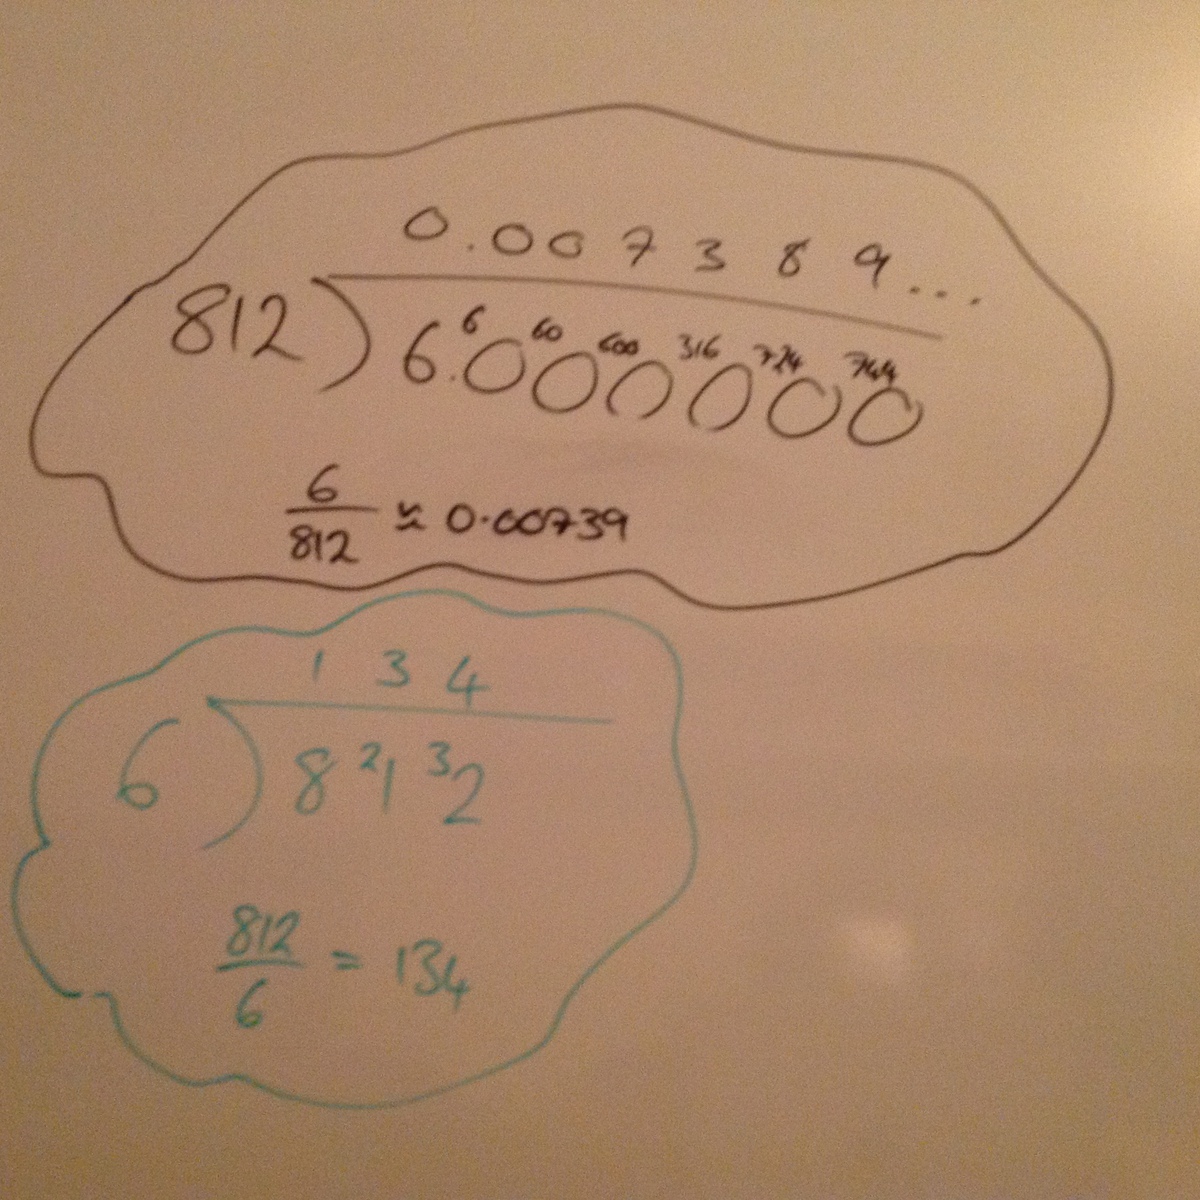 0.007389...
812)6.⁶0⁶⁰0⁶⁰⁰0³¹⁶0⁷²⁴0⁷⁴⁴0
6/812 ≈ 0·00739
134
6)8²1³2
812/6 = 134